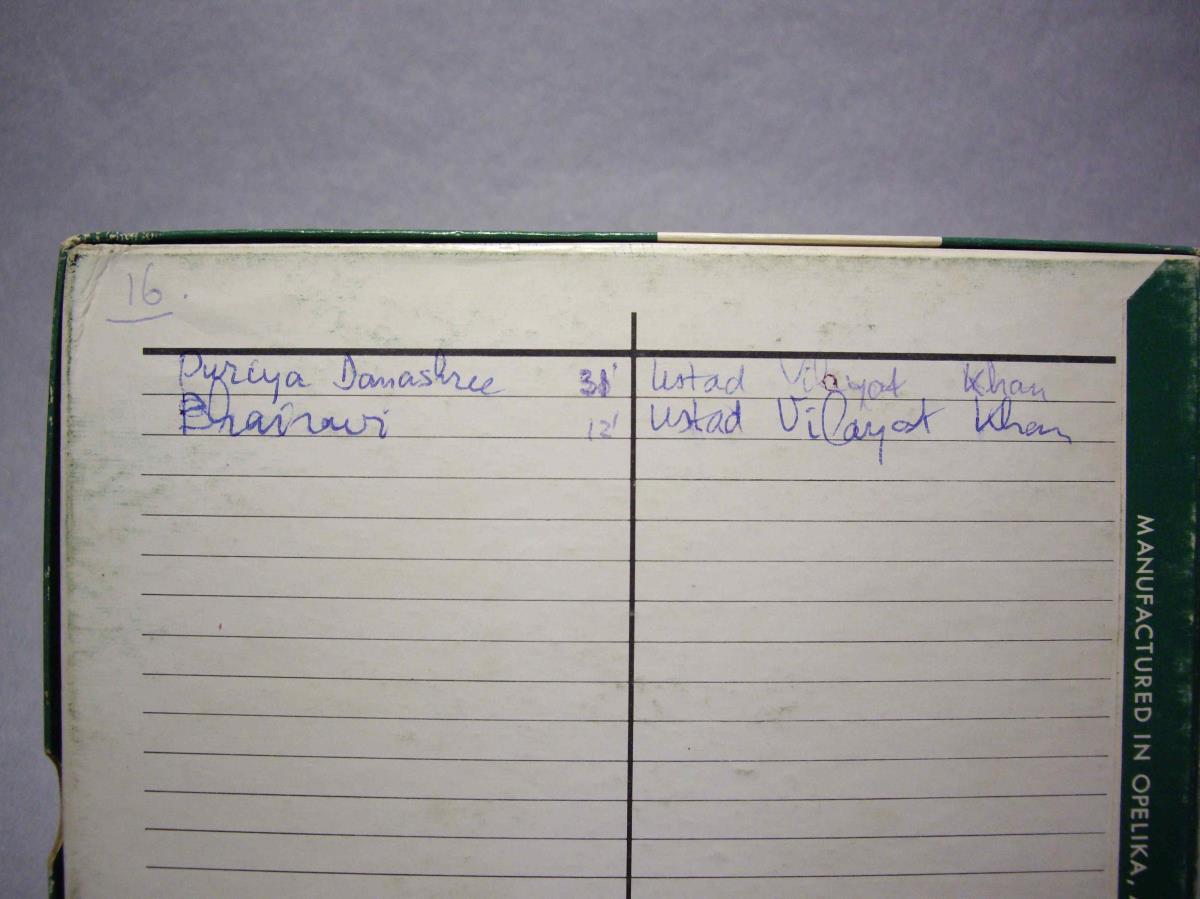 16.
Puriya Danashree 31' Ustad Vilayat Khan
Bhairavi 12' Ustad Vilayat Khan
MANUFACTURED IN OPELIKA,